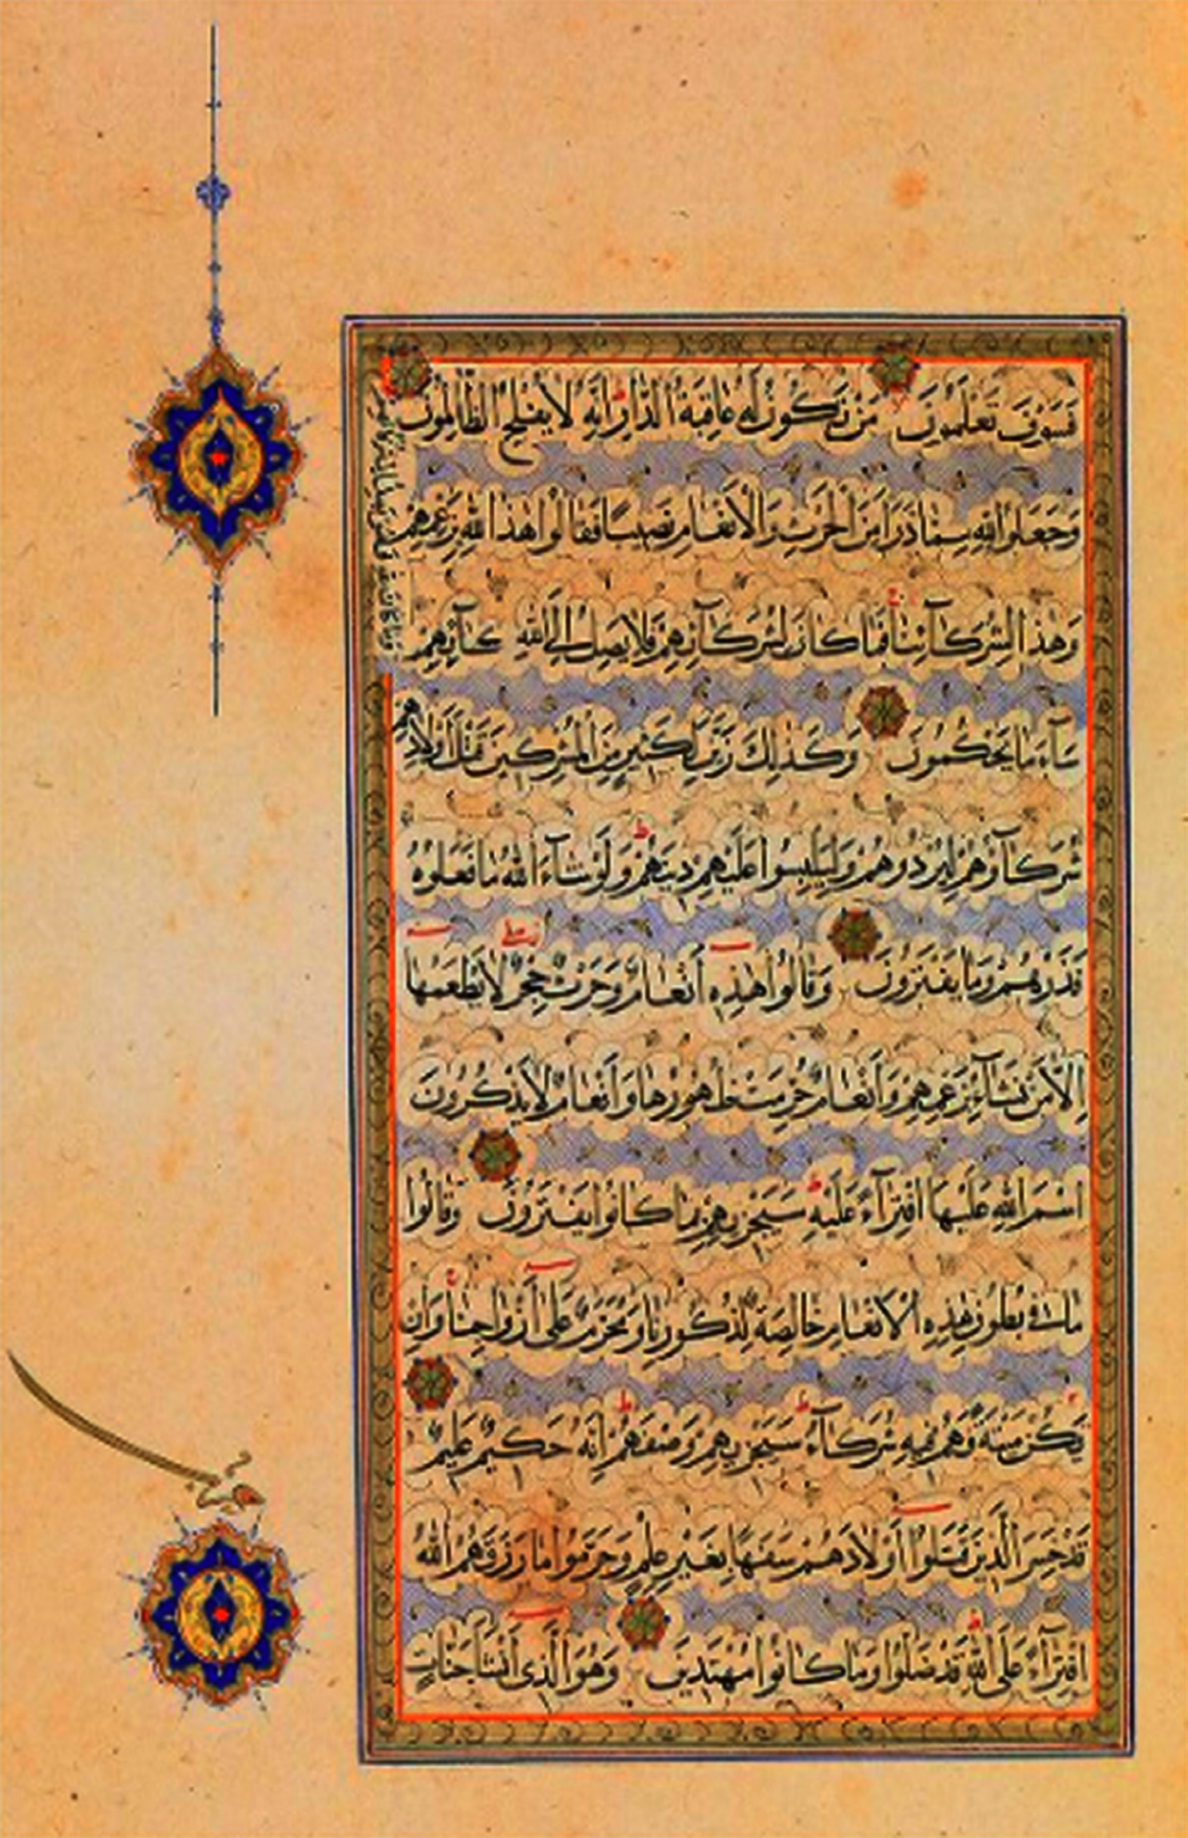 فَسَوْفَ تَعْلَمُونَ مَنْ تَكُونُ لَهُ عَاقِبَةُ الدَّارِ اِنَّهُ لَا يُفْلِحُ الظَّالِمُونَ
وَجَعَلُوا لِلّٰهِ مِمَّا ذَرَاَ مِنَ الْحَرْثِ وَالْاَنْعَامِ نَصِيبًا فَقَالُوا هٰذَا لِلّٰهِ بِزَعْمِهِمْ
وَهٰذَا لِشُرَكَآئِنَا فَمَا كَانَ لِشُرَكَآئِهِمْ فَلَا يَصِلُ اِلَى اللّٰهِ كَآئِهِمْ
سَآءَ مَا يَحْكُمُونَ وَكَذٰلِكَ زَيَّنَ لِكَثِيرٍ مِنَ الْمُشْرِكِينَ قَتْلَ اَوْلَادِهِمْ
شُرَكَآؤُهُمْ لِيُرْدُوهُمْ وَلِيَلْبِسُوا عَلَيْهِمْ دِينَهُمْ وَلَوْ شَآءَ اللّٰهُ مَا فَعَلُوهُ
فَذَرْهُمْ وَمَا يَفْتَرُونَ وَقَالُوا هٰذِهِ اَنْعَامٌ وَحَرْثٌ حِجْرٌ لَا يَطْعَمُهَا
اِلَّا مَنْ نَشَآءُ بِزَعْمِهِمْ وَاَنْعَامٌ حُرِّمَتْ ظُهُورُهَا وَاَنْعَامٌ لَا يَذْكُرُونَ
اسْمَ اللّٰهِ عَلَيْهَا افْتِرَآءً عَلَيْهِ سَيَجْزِيهِمْ بِمَا كَانُوا يَفْتَرُونَ وَقَالُوا
مَا فِى بُطُونِ هٰذِهِ الْاَنْعَامِ خَالِصَةٌ لِذُكُورِنَا وَمُحَرَّمٌ عَلَى اَزْوَاجِنَا وَاِنْ
يَكُنْ مَيْتَةً فَهُمْ فِيهِ شُرَكَآءُ سَيَجْزِيهِمْ وَصْفَهُمْ اِنَّهُ حَكِيمٌ عَلِيمٌ
قَدْ خَسِرَ الَّذِينَ قَتَلُوا اَوْلَادَهُمْ سَفَهًا بِغَيْرِ عِلْمٍ وَحَرَّمُوا مَا رَزَقَهُمُ اللّٰهُ
افْتِرَآءً عَلَى اللّٰهِ قَدْ ضَلُّوا وَمَا كَانُوا مُهْتَدِينَ وَهُوَ الَّذِى اَنْشَاَ جَنَّاتٍ